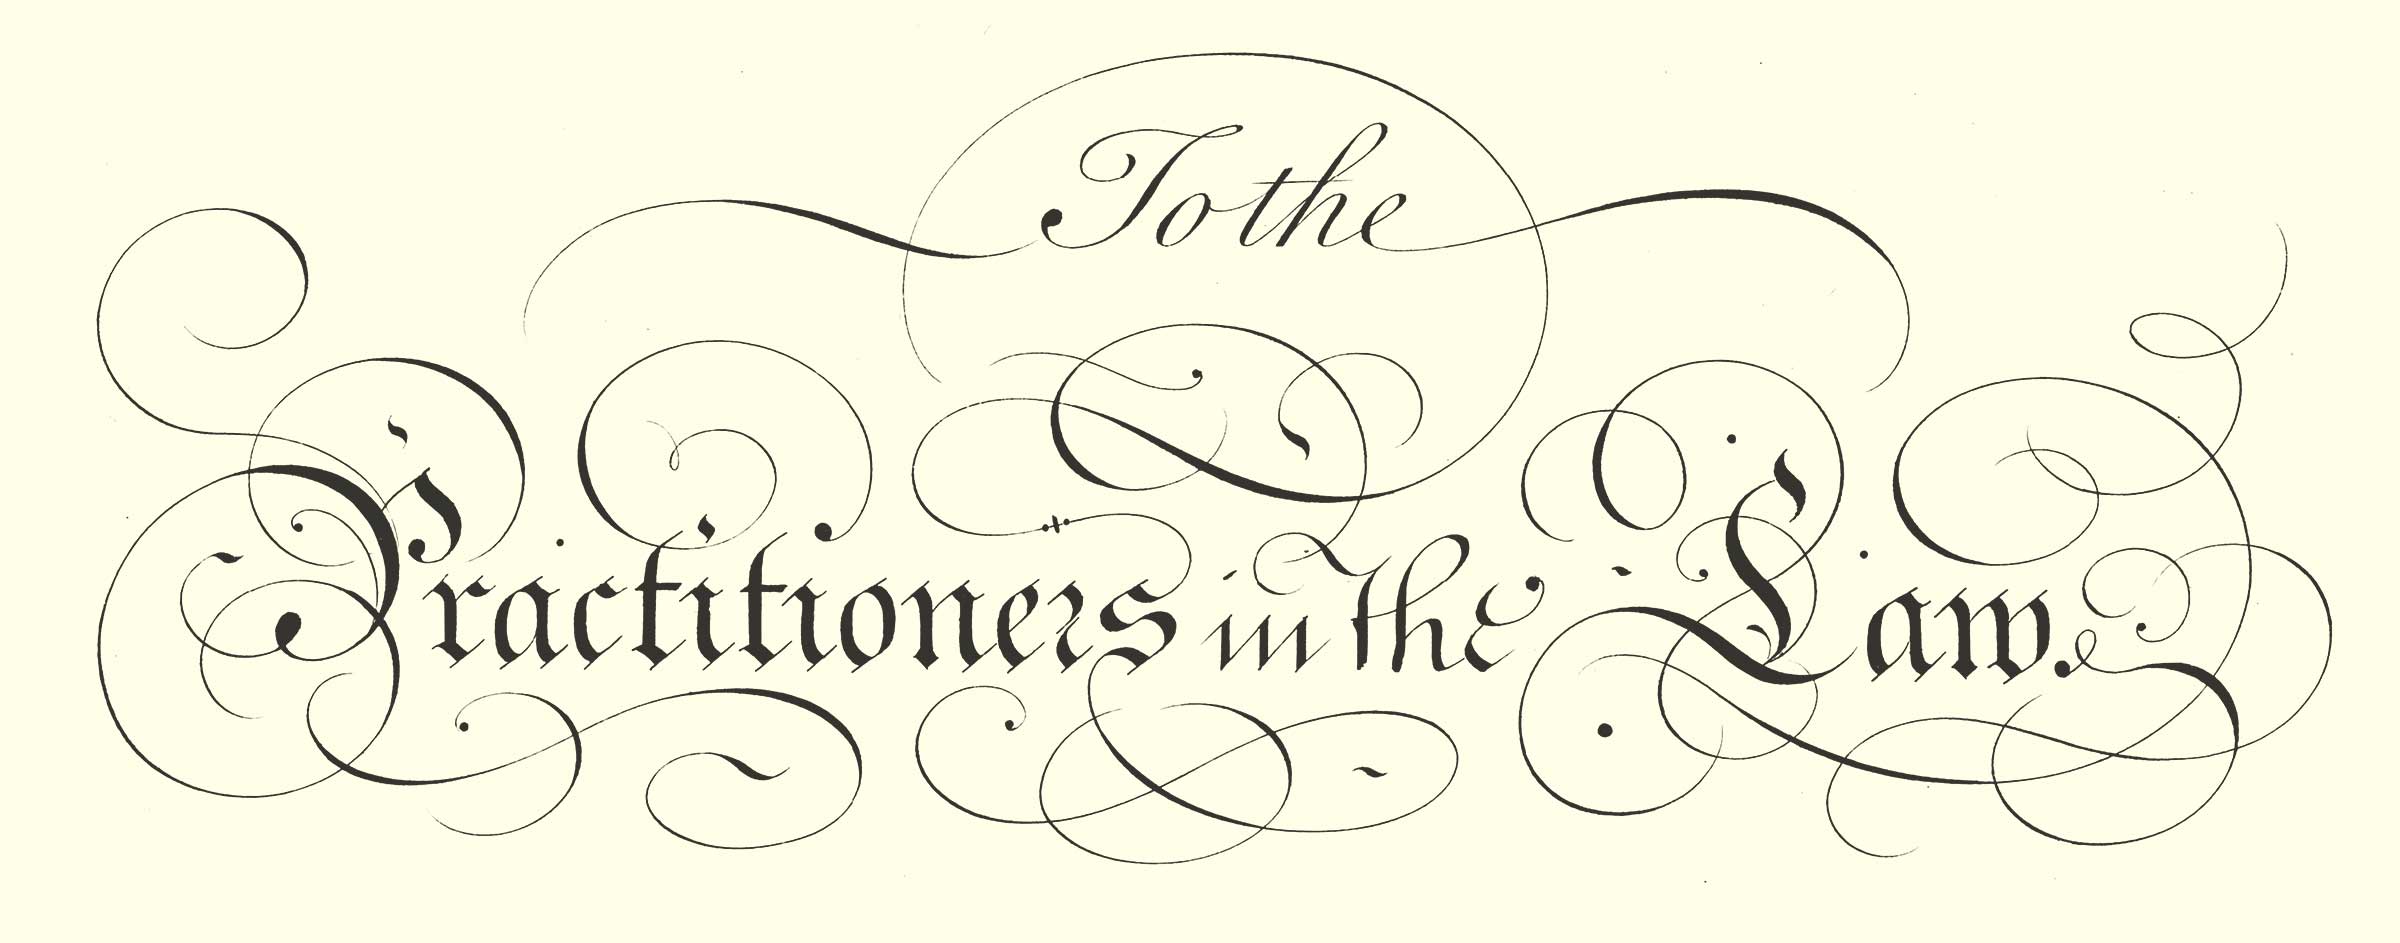 To the
Practitioners in the Law.